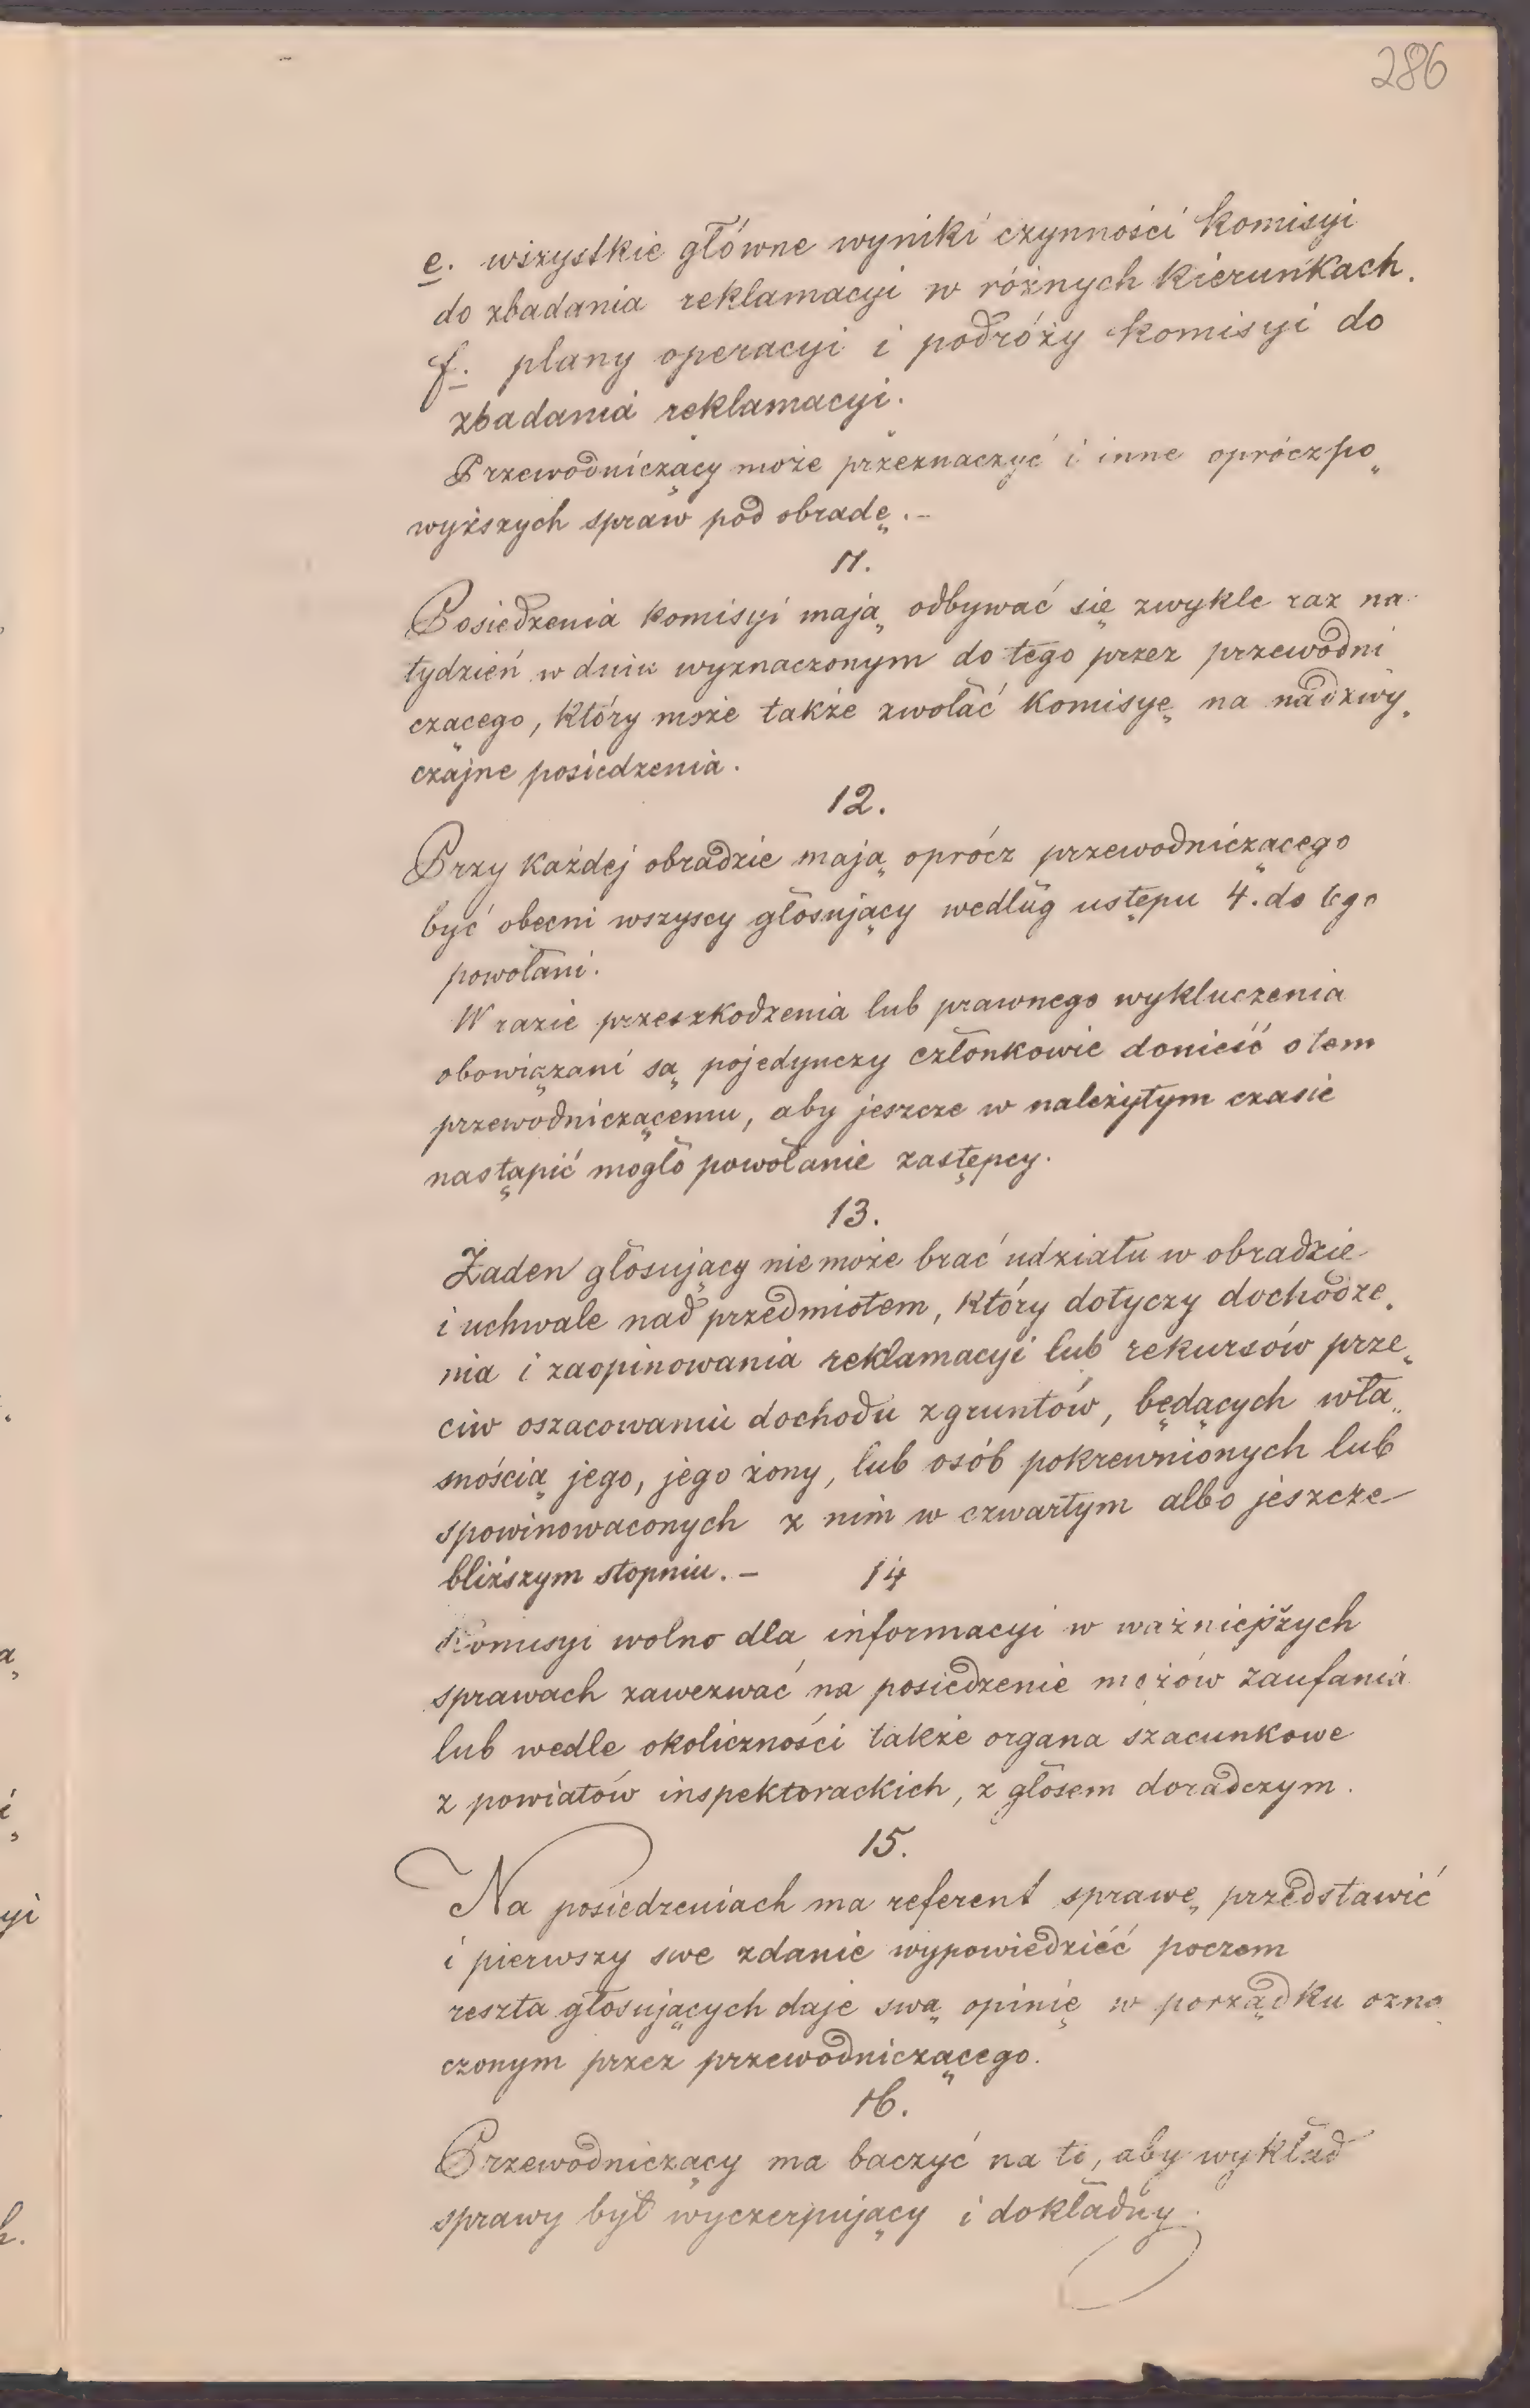 286
e. wszystkie główne wyniki czynności komisyi
do zbadania reklamacyi w różnych kierunkach.
f. plany operacyi i podróży komisyi do
zbadania reklamacyi.
Przewodniczący może przeznaczyć i inne oprócz po„
wyższych spraw pod obradę.–
11.
Posiedzenia komisyi mają odbywać się zwykle raz na
tydzień w dniu wyznaczonym do tego przez przewodni
czącego, który może także zwołać komisyę na nadzwy„
czajne posiedzenia.
12.
Przy każdej obradzie mają oprócz przewodniczącego
być obecni wszyscy głosujący według ustępu 4. do tego
powołani.
W razie przeszkodzenia lub prawnego wykluczenia
obowiązani są pojedynczy członkowie donieść o tem
przewodniczącemu, aby jeszcze w należytym czasie
nastąpić mogło powołanie zastępcy.
13.
Żaden głosujący nie może brać udziału w obradzie
i uchwale nad przedmiotem, który dotyczy dochodze„
nia i zaopinowania reklamacyi lub rekursów prze„
ciw oszacowaniu dochodu z gruntów, będących wła„
snością jego, jego żony, lub osób pokrewnionych lub
spowinowaconych z nim w czwartym albo jeszcze
bliższym stopniu.–
14
Komisyi wolno dla informacyi w ważniejszych
sprawach zawezwać na posiedzenie mężów zaufania
lub wedle okoliczności także organa szacunkowe
z powiatów inspektorackich, z głosem doradczym.
15.
Na posiedzeniach ma referent sprawę przedstawić
i pierwszy swe zdanie wypowiedzieć poczem
reszta głosujących daje swą opinię w porządku ozna
czonym przez przewodniczącego.
16.
Przewodniczący ma baczyć na to, aby wykład
sprawy był wyczerpujący i dokładny.